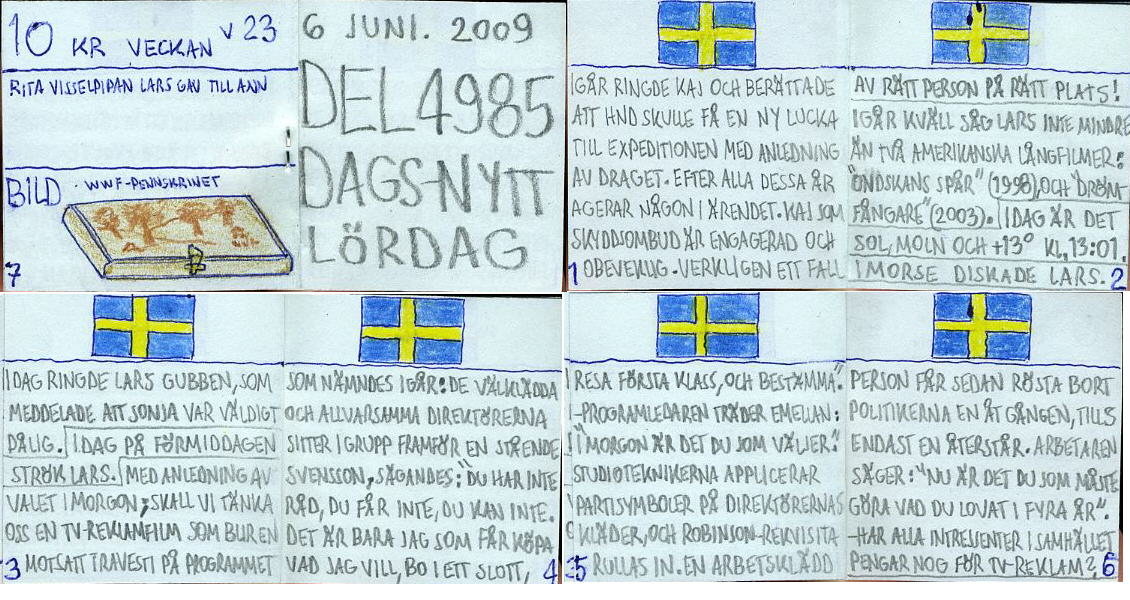 10 KR VECKAN V 23
RITA VISSELPIPAN LARS GAV TILL ANN
BILD · WWF-PENNSKRINET
7
6 JUNI. 2009
DEL 4985
DAGS-NYTT
LÖRDAG
IGÅR RINGDE KAJ OCH BERÄTTADE
ATT HND SKULLE FÅ EN NY LUCKA
TILL EXPEDITIONEN MED ANLEDNING
AV DRAGET. EFTER ALLA DESSA ÅR
AGERAR NÅGON I ÄRENDET. KAJ SOM
SKYDDSOMBUD ÄR ENGAGERAD OCH
OBEVEKLIG. VERKLIGEN ETT FALL
1
AV RÄTT PERSON PÅ RÄTT PLATS!
IGÅR KVÄLL SÅG LARS INTE MINDRE
ÄN TVÅ AMERIKANSKA LÅNGFILMER:
"ONDSKANS SPÅR" (1998), OCH "DRÖM-
FÅNGARE" (2003). IDAG ÄR DET
SOL, MOLN OCH +13° KL, 13:01.
I MORSE DISKADE LARS.
2
IDAG RINGDE LARS GUBBEN, SOM
MEDDELADE ATT SONJA VAR VÄLDIGT
DÅLIG. IDAG PÅ FÖRMIDDAGEN
STRÖK LARS. MED ANLEDNING AV
VALET I MORGON; SKALL VI TÄNKA
OSS EN TV-REKLAMFILM SOM BUR EN
MOTSATT TRAVESTI PÅ PROGRAMMET
3
SOM NÄMNDES IGÅR: DE VÄLKLÄDDA
OCH ALLVARSAMMA DIREKTÖRERNA
SITTER I GRUPP FRAMFÖR EN STÅENDE
SVENSSON, SÄGANDES: "DU HAR INTE
RÅD, DU FÅR INTE, DU KAN INTE.
DET ÄR BARA JAG SOM FÅR KÖPA
VAD JAG VILL, BO I ETT SLOTT,
4
RESA FÖRSTA KLASS, OCH BESTÄMMA".
-PROGRAMLEDAREN TRÄDER EMELLAN:
"I MORGON ÄR DET DU SOM VÄLJER".
STUDIOTEKNIKERNA APPLICERAR
PARTISYMBOLER PÅ DIREKTÖRERNAS
KLÄDER, OCH ROBINSON-REKVISITA
RULLAS IN. EN ARBETSKLÄDD
5
PERSON FÅR SEDAN RÖSTA BORT
POLITIKERNA EN ÅT GÅNGEN, TILLS
ENDAST EN ÅTERSTÅR. ARBETAREN
SÄGER: "NU ÄR DET DU SOM MÅSTE
GÖRA VAD DU LOVAT I FYRA ÅR".
-HAR ALLA INTRESSENTER I SAMHÄLLET
PENGAR NOG FÖR TV-REKLAM?
6